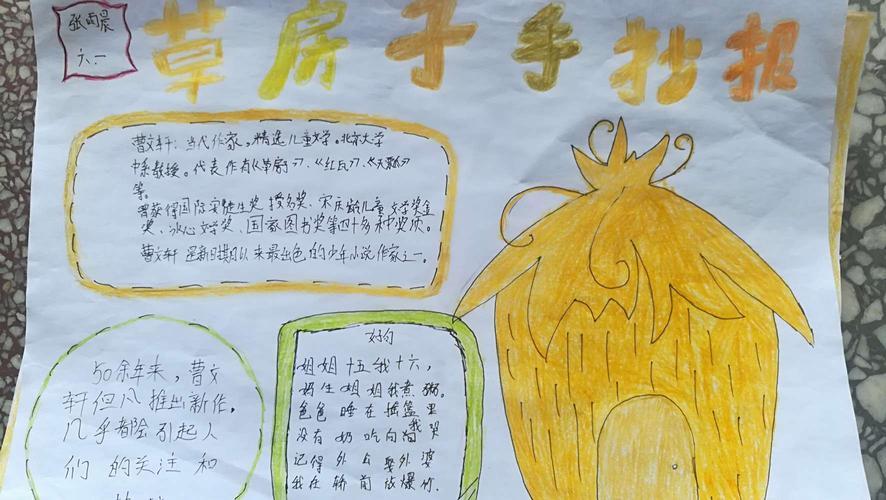 张雨晨
六.一
草房子手抄报
曹文轩:当代作家,精选儿童文学。北京大学
中系教授。代表作有《草房子》、《红瓦》、《天瓢》
等。
曾获得国际安徒生奖 提名奖、宋庆龄儿童文学奖金
奖、冰心文学奖、国家图书奖等四十多种奖项。
曹文轩是新时期以来最出色的少年小说作家之一。
50余年来,曹文
轩但凡推出新作,
几乎都会引起人
们的关注和
好句
姐姐十五我十六,
妈生姐姐我煮粥。
爸爸睡在摇篮里
没有奶吃向我哭
记得外公娶外婆
我在轿前放爆竹.